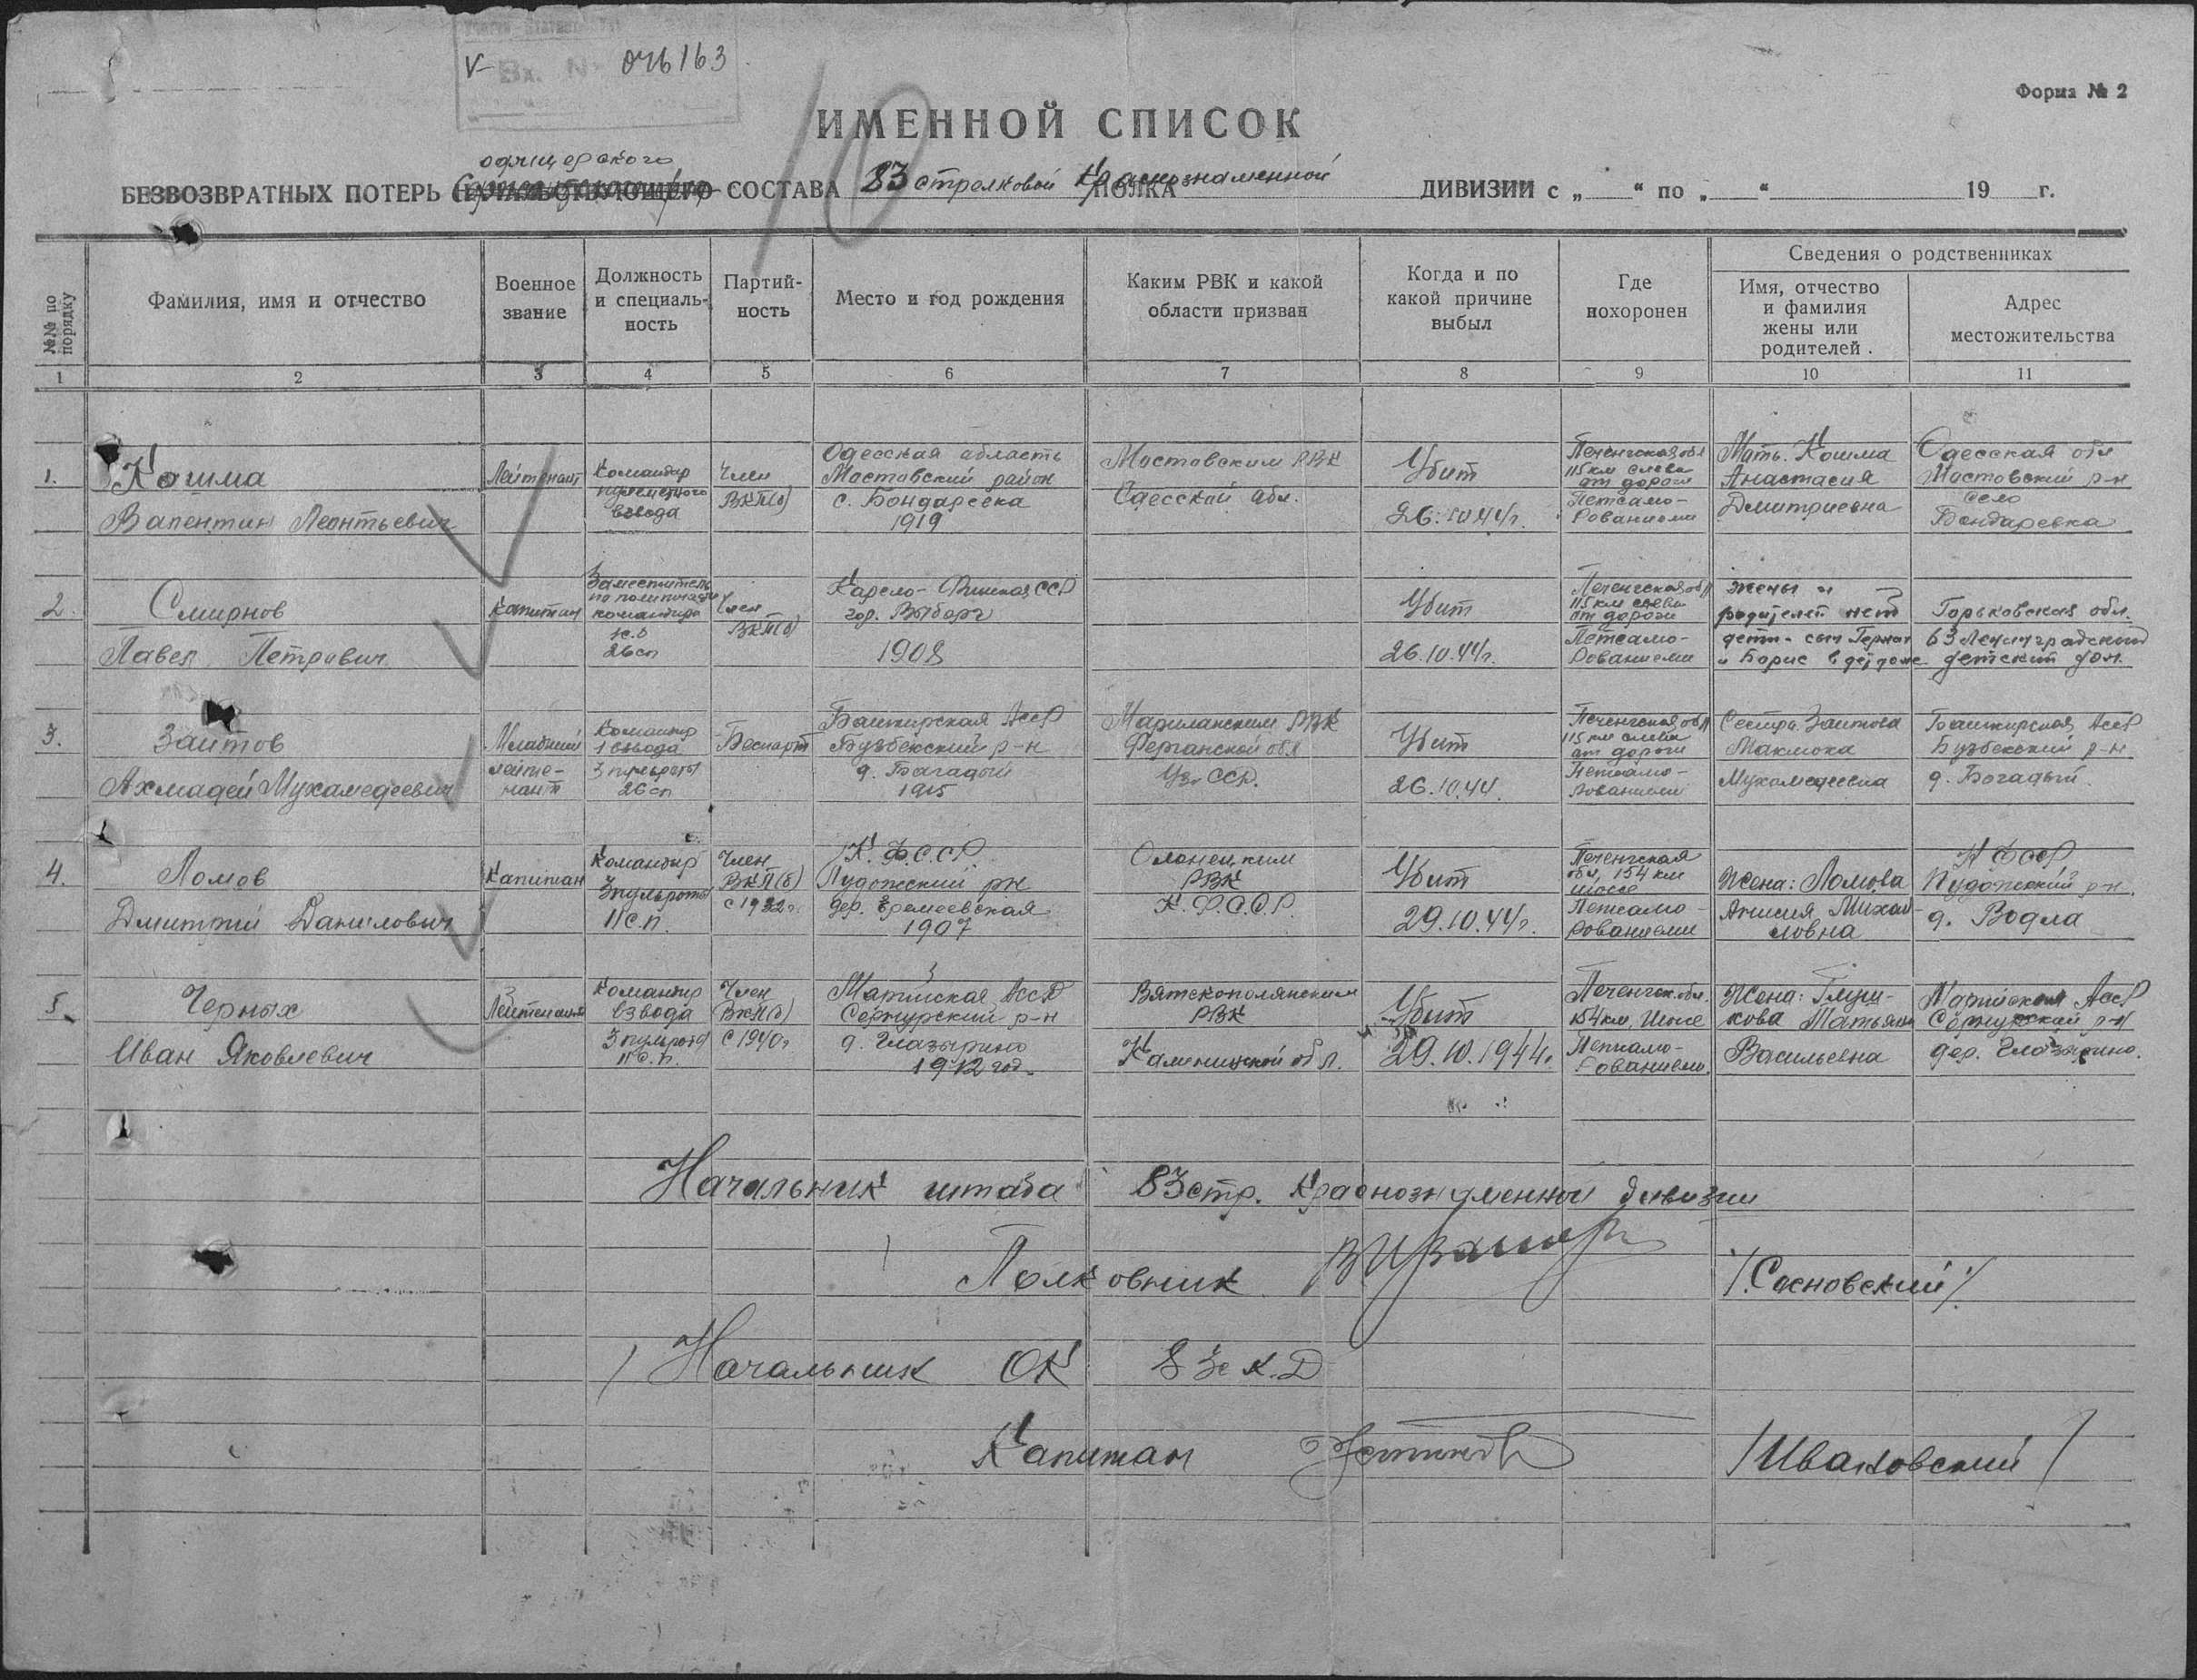 Вх. № 046163
Форма № 2
ИМЕННОЙ СПИСОК
офицерского
БЕЗВОЗВРАТНЫХ ПОТЕРЬ СОСТАВА 83 стрелковой Краснознаменной ПОЛКА ДИВИЗИИ с „ “ по „ “ 19 г.
10
№№ по порядку
Фамилия, имя и отчество
Военное звание
Должность и специаль-ность
Партий-ность
Место и год рождения
Каким РВК и какой области призван
Когда и по какой причине выбыл
Где похоронен
Сведения о родственниках
Имя, отчество и фамилия жены или родителей.
Адрес местожительства
1 2 3 4 5 6 7 8 9 10 11
1.
Кошма
Валентин Леонтьевич
Лейтенант
Командир
пулеметного
взвода
Член
ВКП(б)
Одесская область
Мостовский район
с. Бондаревка
1919
Мостовским РВК
Одесской обл.
Убит
26.10.44г.
Печенгская обл
115 км слева
от дороги
Петсамо-
Рованиеми
Мать. Кошма
Анастасия
Дмитриевна
Одесская обл
Мостовский р-н
село
Бондаревка
2.
Смирнов
Павел Петрович
Капитан
Заместитель
по политчасти
командира
26 сп
Член
ВКП(б)
Карело-Финская ССР
гор. Выборг
1908
Убит
26.10.44г.
Печенгская обл
115 км слева
от дороги
Петсамо-
Рованиеми
жены и
родителей нет
дети - сын Герман
и Борис в детдоме
Горьковская обл.
63 Ленинградский
детский дом.
3.
Заитов
Ахмадей Мухамедеевич
Младший
лейте-
нант
Командир
1 взвода
3 пульроты
26 сп
Беспарт
Башкирская АССР
Бузбекский р-н
д. Багадый
1915
Ферганской обл
Уз. ССР.
Убит
26.10.44.
Печенгская обл
115 км слева
от дороги
Петсамо-
Рованиеми
Сестра. Заитова
Мухамедеевна
Башкирская АССР
Бузбекский р-н
д. Богадый.
4.
Ломов
Дмитрий Данилович
Капитан
Командир
3 пульроты
11 с.п.
Член
ВКП(б)
К.Ф.С.С.Р.
Пудожский рн
дер. Еремеевская
1907
Олонецким
РВК
К.Ф.С.С.Р.
Убит
29.10.44г.
Печенгская
обл, 154 км
шоссе
Петсамо-
Рованиеми
Жена: Ломова
Анисия Михай-
ловна
К ФССР
Пудожский р-н.
д. Водла
5.
Черных
Иван Яковлевич
Лейтенант
Командир
взвода
3 пульроты
11 с.п.
Член
ВКП(б)
с 1940г
Марийская АССР
Сернурский р-н
д. Глазырино
1912 год.
Вятскополянским
РВК
Калининской обл.
Убит
29.10.1944г.
Печенгск. обл.
154 км. Шоссе
Петсамо-
Рованиеми.
Жена: Глуш-
кова Татьяна
Васильевна
Марийская АССР
Сернурский р-н
дер. Глазырино.
Начальник штаба 83 стр. Краснознаменной дивизии
Полковник /Сосновский/
Начальник ОК 83
Капитан /Ивановский/